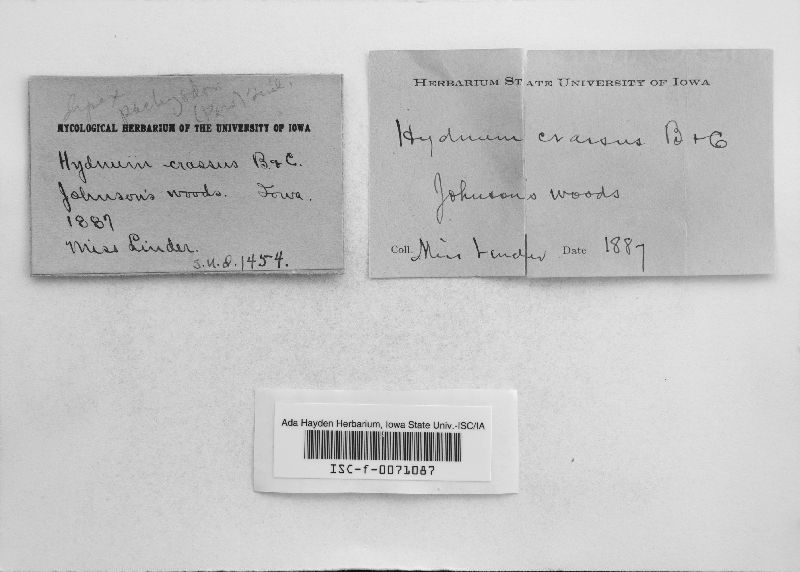 Irpex
pachyodon
(Pers) Quél.
MYCOLOGICAL HERBARIUM OF THE UNIVERSITY OF IOWA
Hydnum crassus B & C.
Johnson's woods. Iowa.
1887
Miss Linder.
S.U.I. 1454.
HERBARIUM STATE UNIVERSITY OF IOWA
Hydnum crassus B & C
Johnsons woods
Coll. Miss Linder Date 1887
Ada Hayden Herbarium, Iowa State Univ.-ISC/IA
ISC-f-0071087